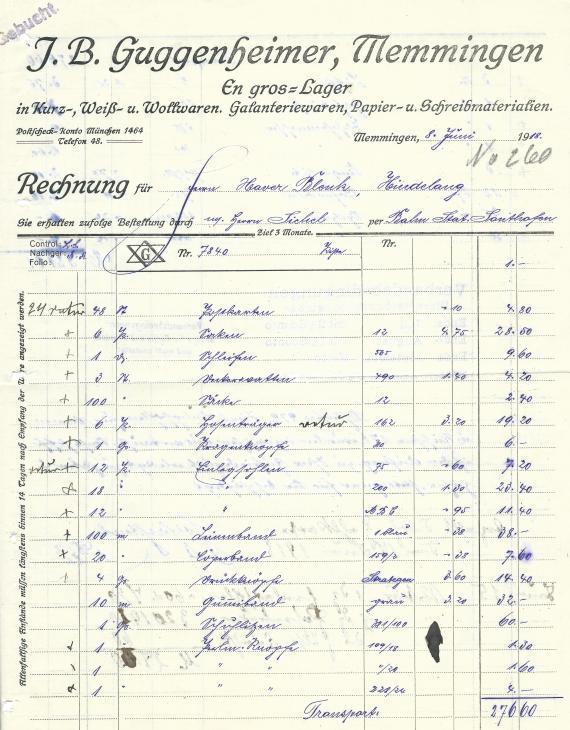 Gebucht.
J. B. Guggenheimer, Memmingen
En gros=Lager
in Kurz-, Weiß- u. Wollwaren. Galanteriewaren, Papier- u. Schreibmaterialien.
Postscheck-Konto München 1464
Telefon 48.
Memmingen, 8. Juni 1918.
No 260
Rechnung für Herrn Xaver Blenk, Hindelang
Sie erhalten zufolge Bestellung durch Herrn Sichel per Bahn Stat. Sonthofen
Ziel 3 Monate.
Control:
Nachger.
Folio:
G Nr. 7840 Kiste Nr. 1.-
Allenfallsige Anstände müssen längstens binnen 14 Tagen nach Empfang der Ware angezeigt werden.
24 retur 48 St Postkarten - 10 4.80
6 12 4.75 28.50
1 Schleifen 9.60
3 St. 490 1.40 4.20
100 " Säcke 12 2.40
6 Hosenträger retur 162 3.20 19.20
1 Kragenknöpfe 6.-
retur 12 Einlegsohlen 75 - 60 7.20
18 " " 200 1.30 23.40
12 " " - 95 11.40
100 m Leinenband - 38 38.-
20 " Cöperband 159/3 - 38 7.60
4 Druckknöpfe 3.60 14.40
10 m Gumiband grau 3.20 32.-
1 Schuhlitzen 301/100 60.-
1 " Knöpfe 1.30
1 " " " 1.60
1 " " " 4.-
Transport: 276.60